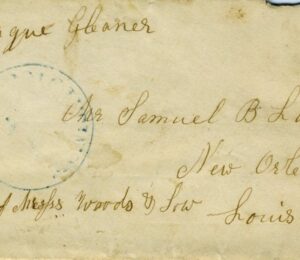 que Gleaner
Mr Samuel B L
New Orle
of Mess Woods & Low
Louis